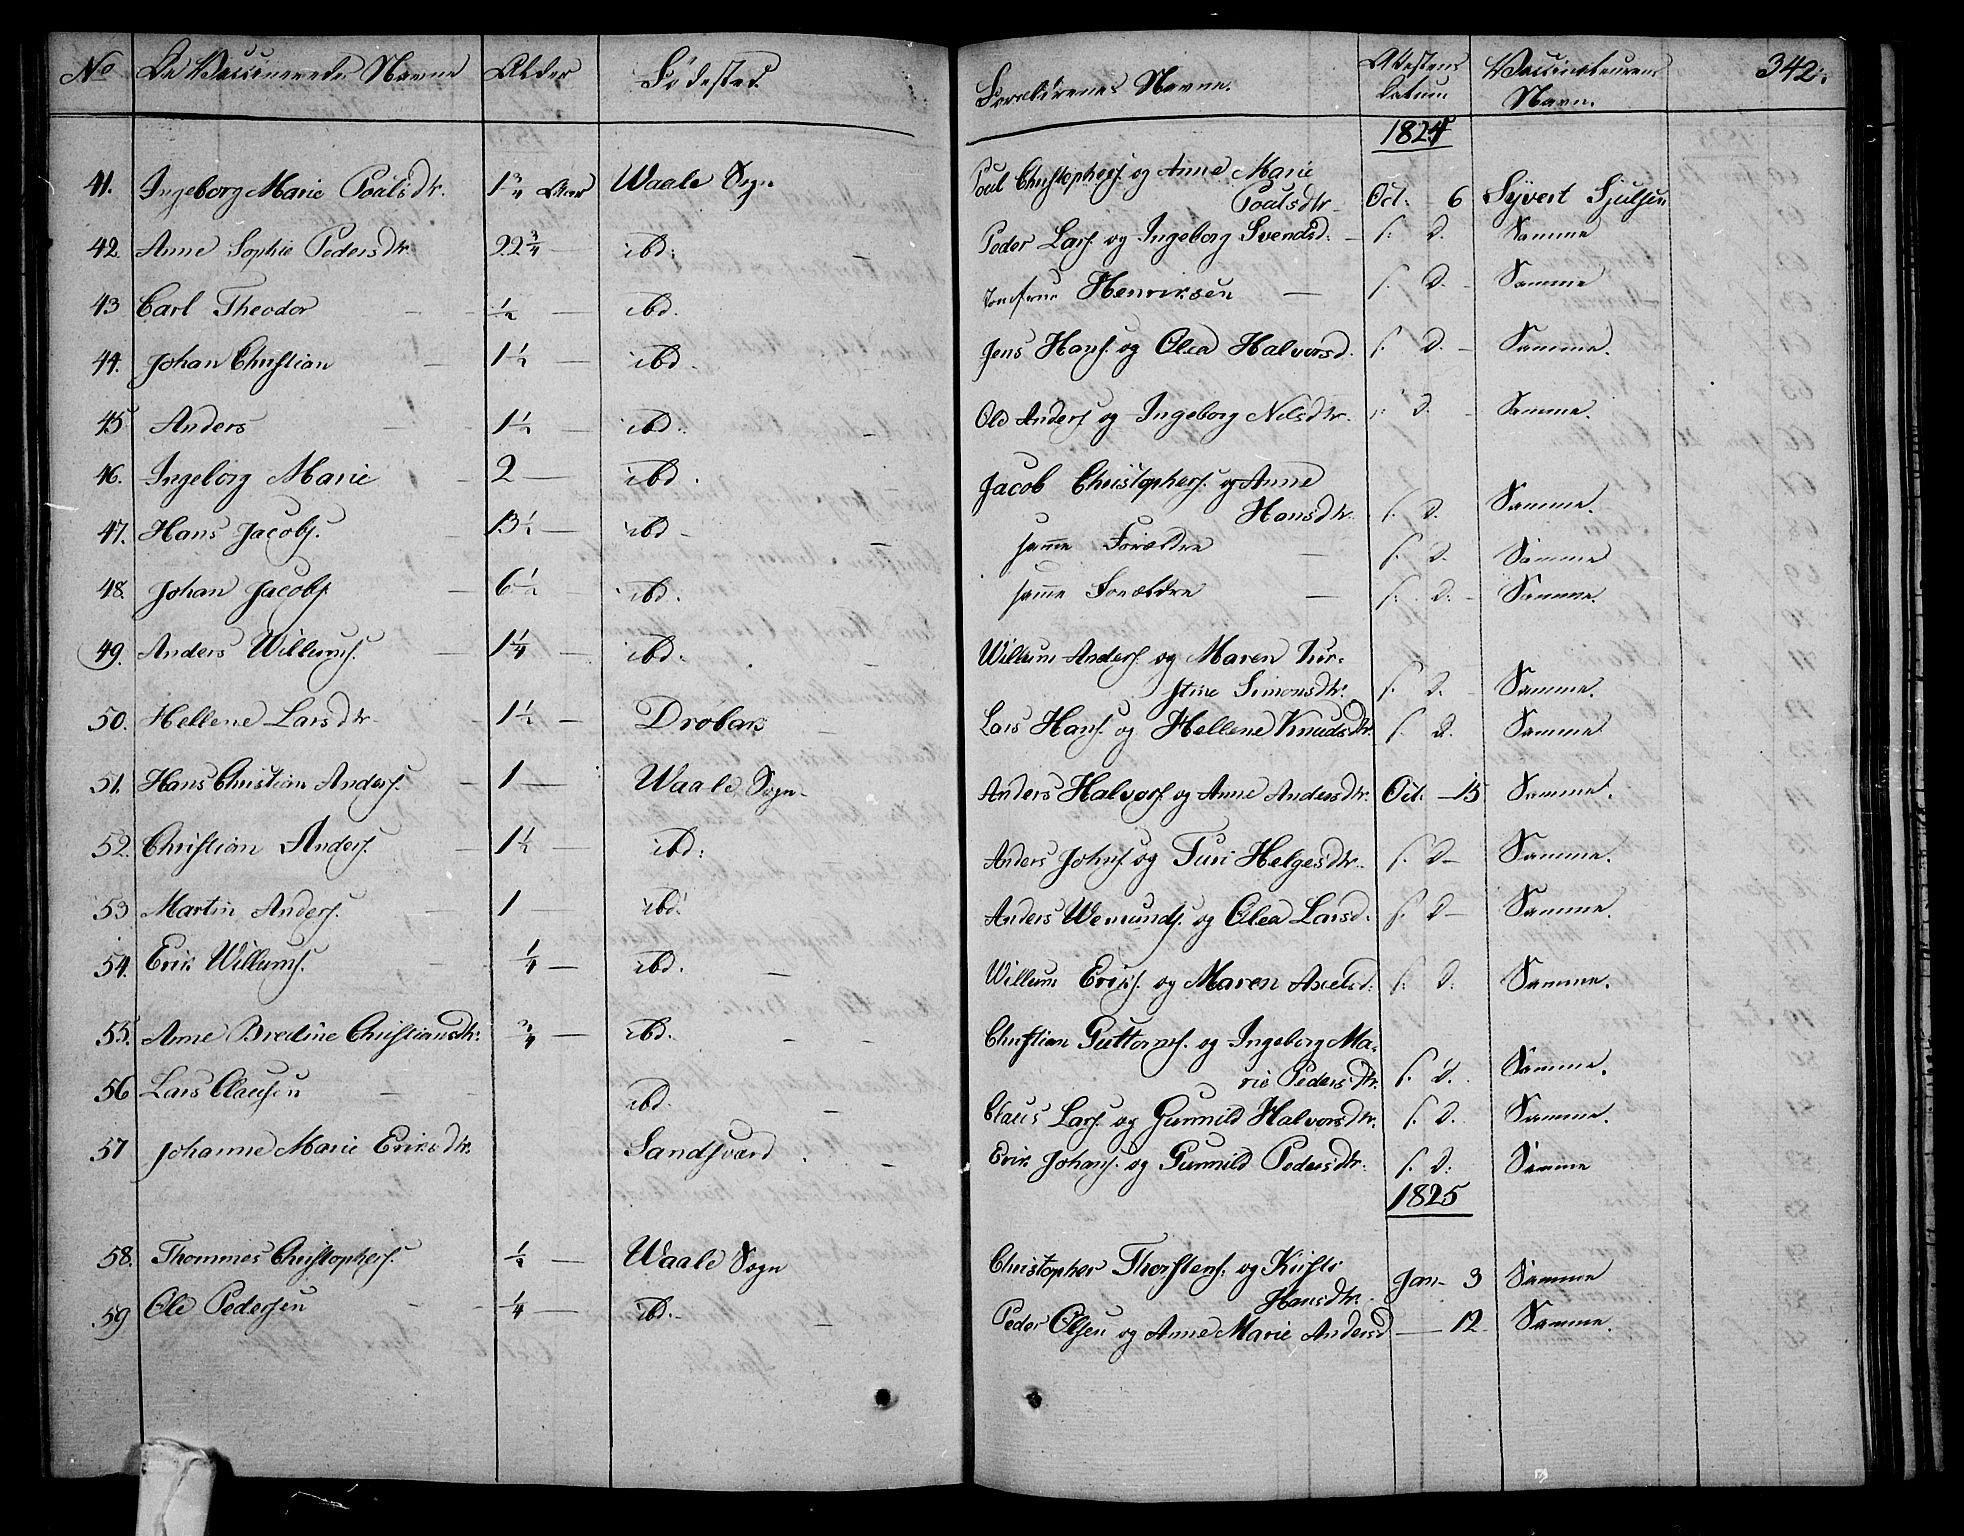 No De Vaccineredes Navne Alder Fødested Forældrenes Navne. Attestens Datum Vaccinateurens Navn. 342.
1824
41. Ingeborg Marie Poulsdtr. 1 3/4 Aar Waale Sogn Poul Christophers. og Anne Marie
Poulsdtr Oct. 6 Syvert Sjulsen
42. Anne Sophie Pedersdtr. 22 3/4 — ibd: — Peder Lars. og Ingeborg Svendsd. — s. d. Samme
43 Carl Theodor — 1/2 — ibd. Henriksen — s. d. — Samme
44. Johan Christian — 1 1/2 — ibd. Jens Hans. og Olea Halvorsd. s. d. — Samme.
45 Anders — 1 1/2 — ibd. — Ole Anders. og Ingeborg Nilsdtr. s. d. — Samme.
46. Ingeborg Marie — 2 — ibd. Jacob Christophers. og Anne
Hansdtr. s. d. Samme.
47. Hans Jacobs. — 13 1/2 — ibd — samme Forældre — s. d. Samme
48. Johan Jacobs. — 6 1/2 — ibd. samme Forældre — s. d. — Samme.
49. Anders Willums. — 1 1/4 — ibd. — Willum Anders. og Maren
stine Simonsdtr. s. d. — Samme.
50. Hellene Larsdtr — 1 1/2 — Drobak — Lars Hans. og Hellene Knudsdtr. s. d. Samme
51. Hans Christian Anders. — 1 — Waale Sogn — Anders Halvors. og Anne Andersdtr. Oct. — 15 Samme.
52. Christian Anders. — 1 1/2 — ibd: Anders Johns. og Turi Helgesdtr. s. d — Samme.
53 Martin Anders. — 1 — ibd. Anders Wemunds. og Olea Larsd. s. d — Samme.
54. Erik Willums. — 1/4 — ibd. — Willum Eriks. og Maren Axelsd. s. d. Samme.
55. Anne Bredine Christiansdtr. 3/4 — ibd. — — Christian Guttorms. og Ingeborg Ma-
rie Pedersdtr. s. d. Samme.
56 Lars Clausen — ibd. — Claus Lars. og Gunnild Halvorsdtr. s. d. Samme.
57 Johanne Marie Eriksdtr. Sandsværd. — Erik Johans. og Gunnild Pedersdtr. s. d. Samme
1825
58. Thommes Christophers. 1/2 — Waale Sogn Christopher Thorstens. og Kisti
Hansdtr. Jan. 3 Samme
59 Ole Pedersen — 1/4 — ibd. — Peder Olsen og Anne Marie Andersd — 12. Samme.